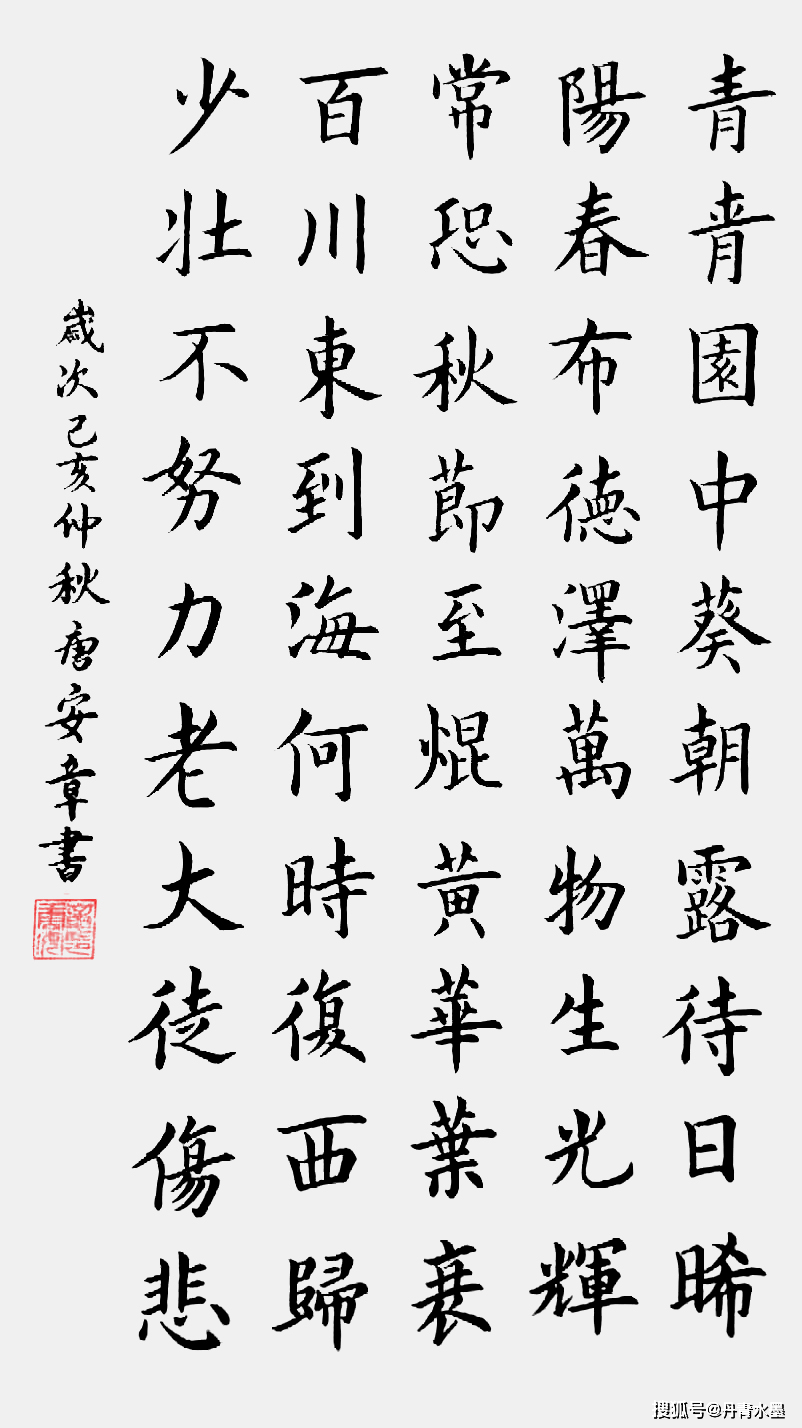 青青園中葵朝露待日晞
陽春布德澤萬物生光輝
常恐秋節至焜黃華葉衰
百川東到海何時復西歸
少壯不努力老大徒傷悲
歲次己亥仲秋唐安章書
搜狐号@丹青水墨